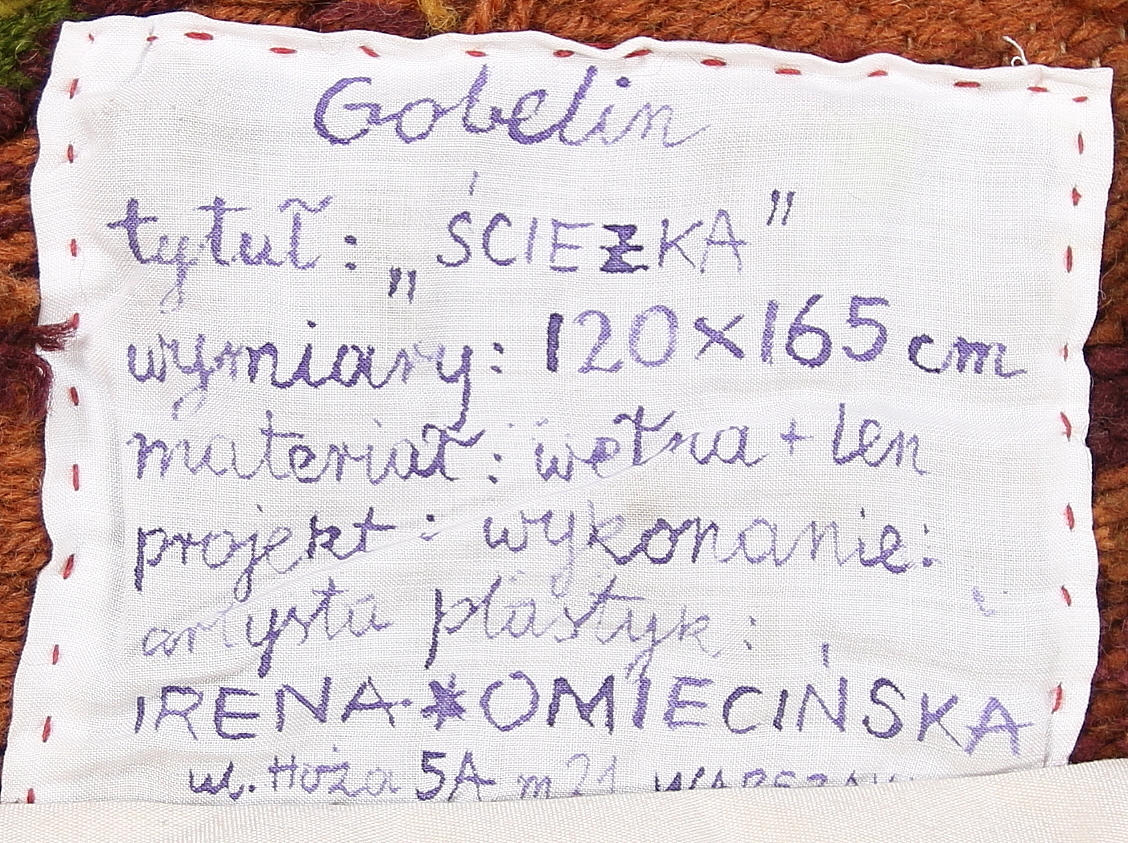 Gobelin
tytuł: „ŚCIEƵKA”
wymiary: 120x165cm
materiał: wełna + len
projekt i wykonanie:
artysta plastyk:
IRENA OMIECIŃSKA
ul. Hoża 5A m 21 WARSZAW